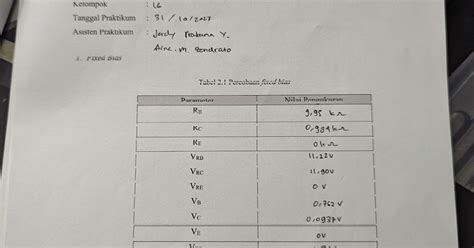 Kelompok : 16
Tanggal Praktikum : 31 / 10 / 2023
Asisten Praktikum : Jordy Y.
M. Sendrato
1. Fixed Bias
Tabel 2.1 Percobaan fixed bias
Parameter Nilai Pengukuran
RB 9,95 kΩ
RC 0,984kΩ
RE 0kΩ
VRD 11.22V
VRC 11.90V
VRE 0 V
VB 0,762 V
VC 0,0937V
VE 0V